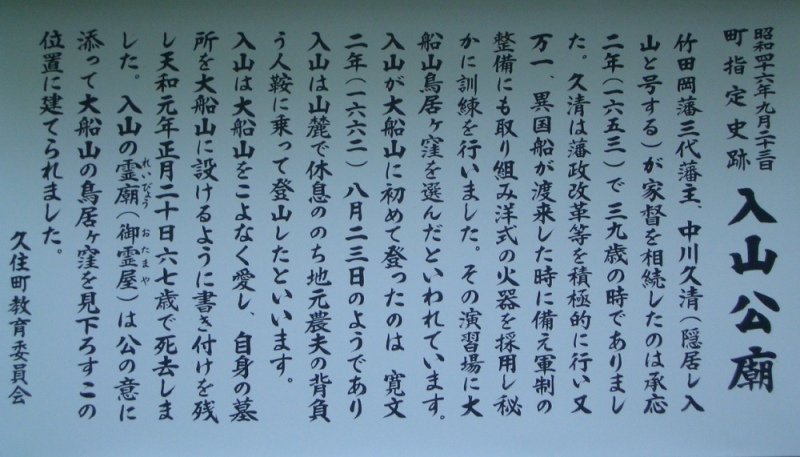 昭和四十六年九月二十三日
町指定史跡
入山公廟
竹田岡藩三代藩主、中川久清(隠居し入
山と号する)が家督を相続したのは承応
二年(一六五三)で三九歳の時でありまし
た。久清は藩政改革等を積極的に行い又
万一、異国船が渡来した時に備え軍制の
整備にも取り組み洋式の火器を採用し秘
かに訓練を行いました。その演習場に大
船山鳥居ヶ窪を選んだといわれています。
入山が大船山に初めて登ったのは 寛文
二年(一六六二) 八月二三日のようであり
入山は山麓で休息ののち地元農夫の背負
う人鞍に乗って登山したといいます。
入山は大船山をこよなく愛し、自身の墓
所を大船山に設けるように書き付けを残
し天和元年正月二十日六七歳で死去しま
した。入山の霊廟(御霊屋)は公の意に
れいびょう おたまや
添って大船山の鳥居ヶ窪を見下ろすこの
位置に建てられました。
久住町教育委員会